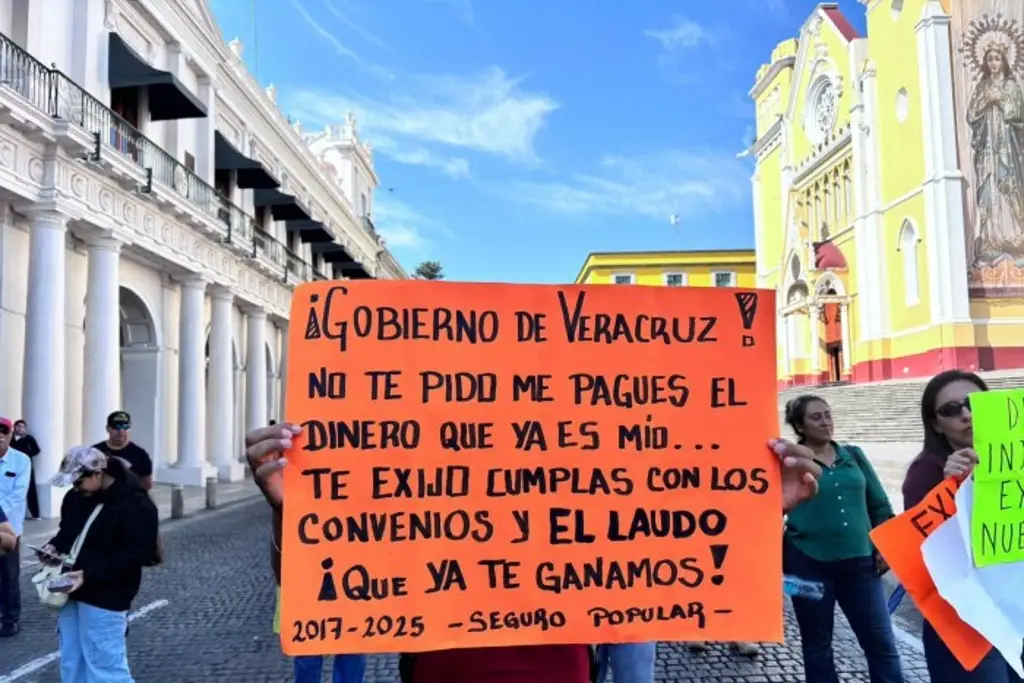 ¡GOBIERNO DE VERACRUZ!
NO TE PIDO ME PAGUES EL
DINERO QUE YA ES MÍO...
TE EXIJO CUMPLAS CON LOS
CONVENIOS Y EL LAUDO
¡QUE YA TE GANAMOS!
2017-2025 -SEGURO POPULAR-